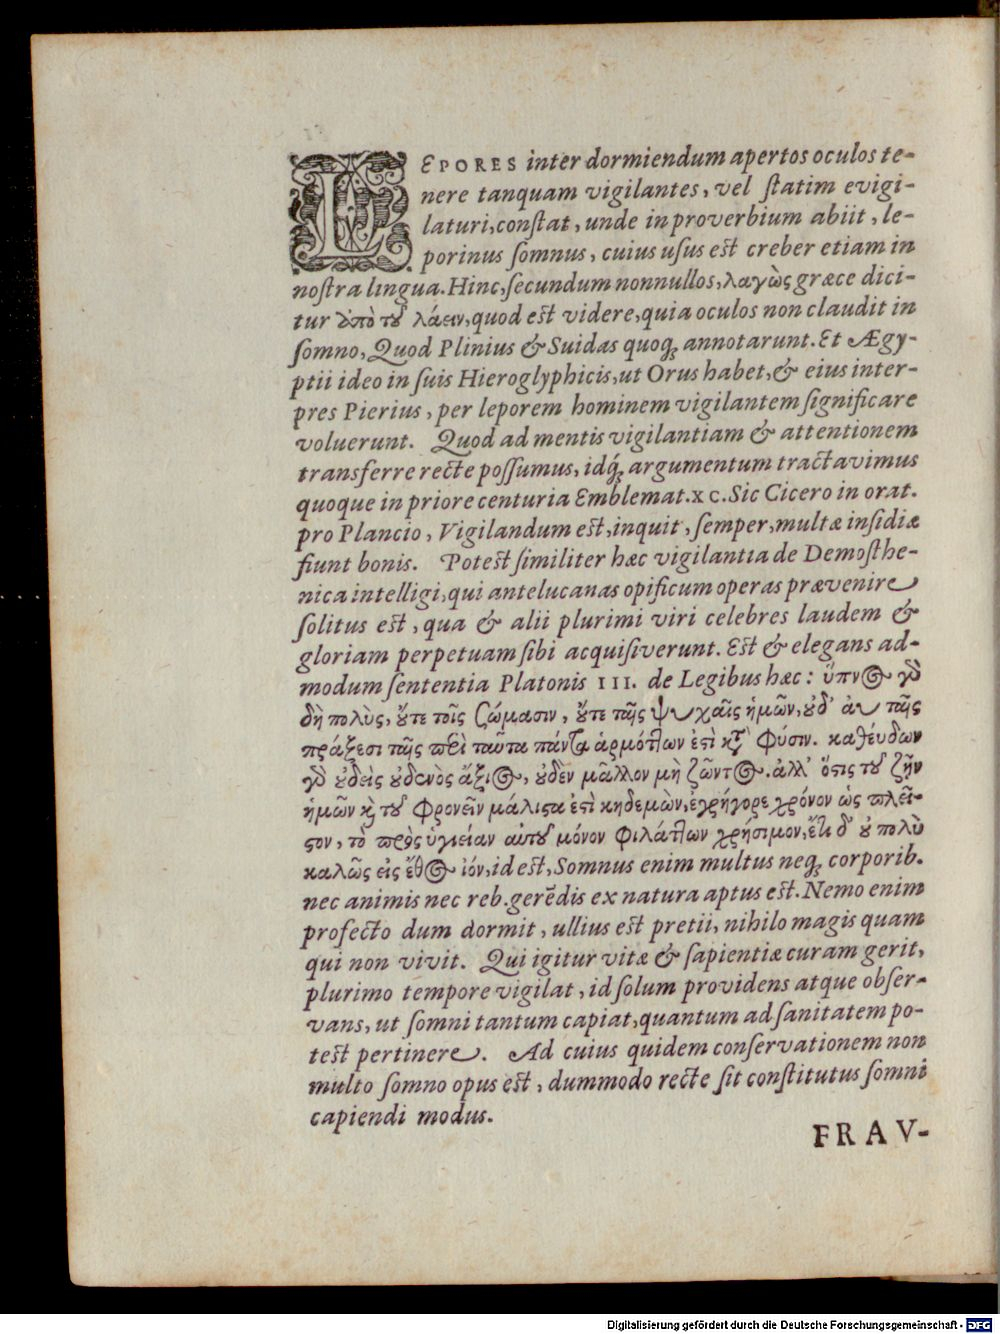 LEPORES inter dormiendum apertos oculos te-
nere tanquam vigilantes, vel ſtatim evigi-
laturi, conſtat, unde in proverbium abiit, le-
porinus ſomnus, cuius uſus est creber etiam in
noſtra lingua. Hinc, ſecundum nonnullos, λαγὼς græce dici-
tur ἀπὸ τȣ͂ λάειν, quod est videre, quia oculos non claudit in
ſomno, Quod Plinius & Suidas quoq; annotarunt. Et Ægy-
ptii ideo in ſuis Hieroglyphicis, ut Orus habet, & eius inter-
pres Pierius, per leporem hominem vigilantem ſignificare
voluerunt. Quod ad mentis vigilantiam & attentionem
transferre recte poſſumus, idq́; argumentum tractavimus
quoque in priore centuria Emblemat. XC. Sic Cicero in orat.
pro Plancio, Vigilandum est, inquit, ſemper, multæ inſidiæ
fiunt bonis. Potest ſimiliter hæc vigilantia de Demoſthe-
nica intelligi, qui antelucanas opificum operas prævenire
ſolitus est, qua & alii plurimi viri celebres laudem &
gloriam perpetuam ſibi acquiſiverunt. Est & elegans ad-
modum ſententia Platonis III. de Legibus hæc: ὕπνος γὸ
δὴ πολὺς, ȣ̓́τε τοῖς ζώμασιν, ȣ̓́τε ταῖς ψυχαῖς ἡμῶν, ȣ̓δ' αὖ ταῖς
πράξεσι ταῖς περὶ ταῦτα πάντα ἁρμότ\τ/ων ἐϛὶ κτ̀ φύσιν. καθέυδων
γὸ ȣ̓δεὶς ȣ̓δενὸς ἄξιος, ȣ̓δὲν μᾶλλον μὴ ζῶντος. ἀλλ' ὅϛις τȣ͂ ζῆν
ἡμῶν κὶ τȣ͂ φρονεῖν μάλιϛα ἐϛὶ κηδεμὼν, ἐγρήγορε χρόνον ὡς πλεῖ-
ϛον, τὸ πρὸς ὑγιείαν αὑτȣ͂ μόνον φιλάτ\τ/ων χρήσιμον, ἔϛι δ' ȣ̓ πολὺ
καλῶς εἰς ἔθος ἰόν, id est, Somnus enim multus neq; corporib.
nec animis nec reb. gerẽdis ex natura aptus est. Nemo enim
profecto dum dormit, ullius est pretii, nihilo magis quam
qui non vivit. Qui igitur vitæ & ſapientiæ curam gerit,
plurimo tempore vigilat, id ſolum providens atque obſer-
vans, ut ſomni tantum capiat, quantum ad ſanitatem po-
test pertinere. Ad cuius quidem conſervationem non
multo ſomno opus est, dummodo recte ſit conſtitutus ſomni
capiendi modus.
FRAV-
Digitalisierung gefördert durch die Deutsche Forschungsgemeinschaft - DFG